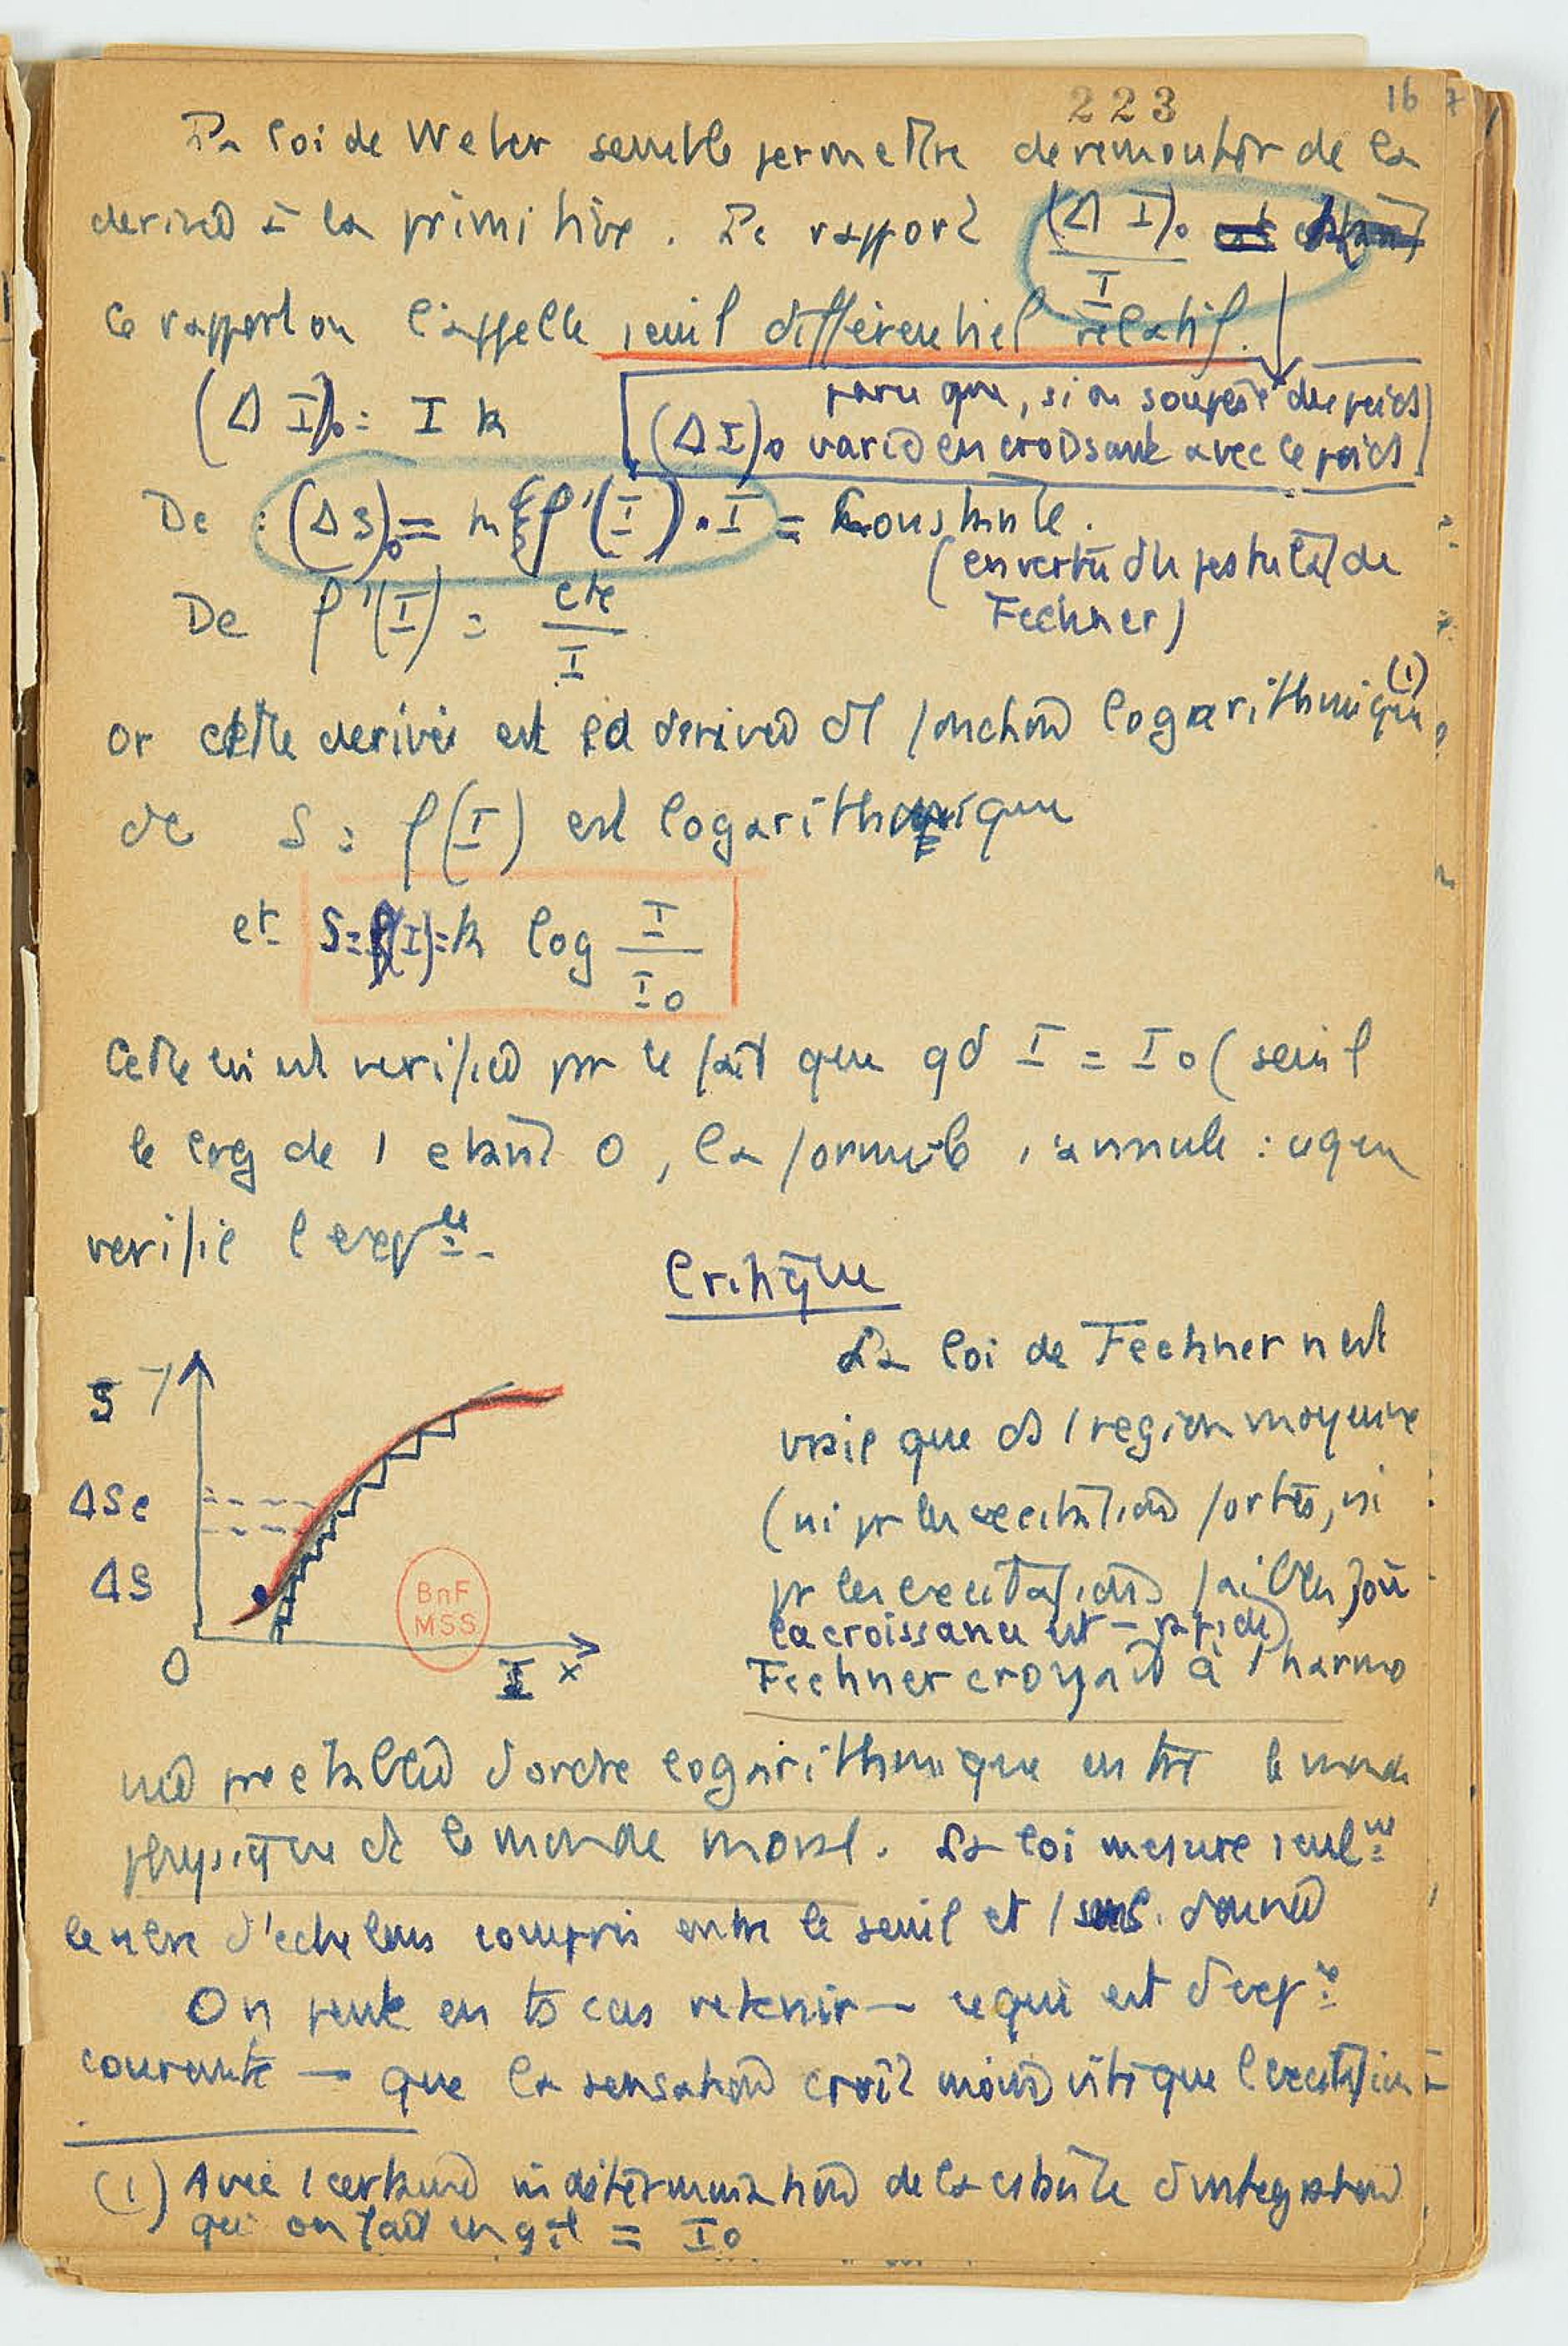 223 16 7
La loi de Weber semble permettre de remonter de la
derivée à la primitive. Le rapport (Δ I)₀ / I
Ce rapport on l'appelle seuil différentiel relatif.
parce que, si on soupèse des poids
(Δ I)₀ = I k
(Δ I)₀ varie en croissant avec le poids
De : (Δ S)₀ = m f'(I) . I = Constante.
(en vertu du postulat de
Fechner)
De f'(I) = cte / I
or cette derivée est la derivée d' 1 fonction logarithmique (1)
dc S = f(I) est logarithmique
et S = f(I) = k log I / I₀
Cette loi est verifiée pr le fait que qd I = I₀ (seuil
le log de 1 étant 0, la formule s'annule : ce que
verifie l'expce.
Critique
S
ΔSe
ΔS
O
I x
BnF
MSS
La loi de Fechner n'est
vraie que ds 1 region moyenne
(ni pr les excitations fortes, ni
pr les excitations faibles) où
la croissance est – rapide)
Fechner croyait à 1 harmo
nie preetablie d'ordre logarithmique entre le monde
physique et le monde moral. La loi mesure seulmt
le nbre d'echelons compris entre le seuil et 1 sens. donnée
On peut en ts cas retenir — ce qui est d'expce
courante — que la sensation croit moins vite que l'excitation –
(1) Avec 1 certaine indétermination de la cstante d'integration
qu on fait en gal = I₀